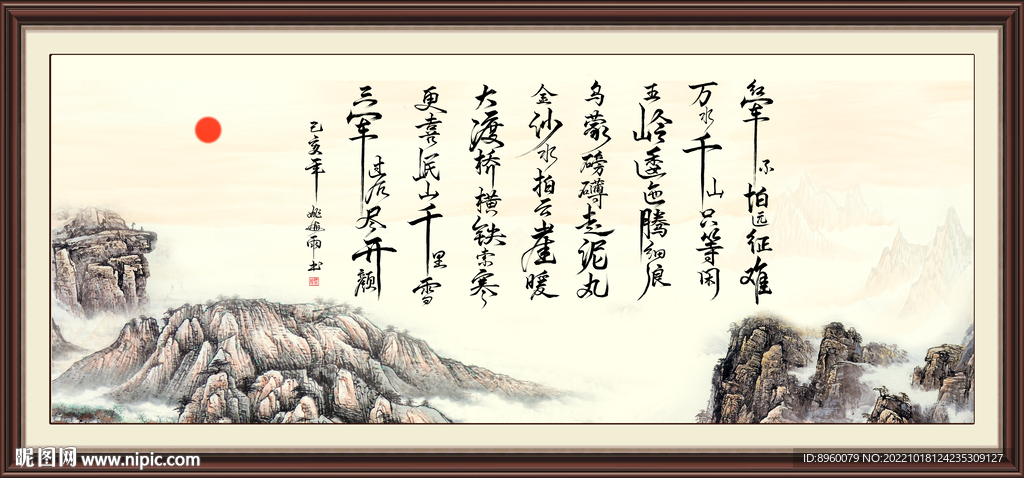 红军不怕远征难
万水千山只等闲
五岭逶迤腾细浪
乌蒙磅礴走泥丸
金沙水拍云崖暖
大渡桥横铁索寒
更喜岷山千里雪
三军过后尽开颜
己亥年 雨书
昵图网 www.nipic.com
ID:8960079 NO:20221018124235309127